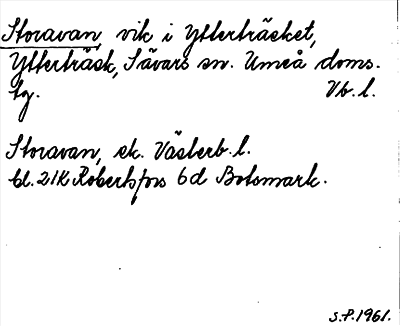 Storavan, vik i Ytterträsket,
Ytterträsk, Sävars sn. Umeå doms.
tg. Vb. l.
Storavan, ek. Västerb. l.
bl. 21K Robertsfors 6d Botsmark.
S.P. 1961.